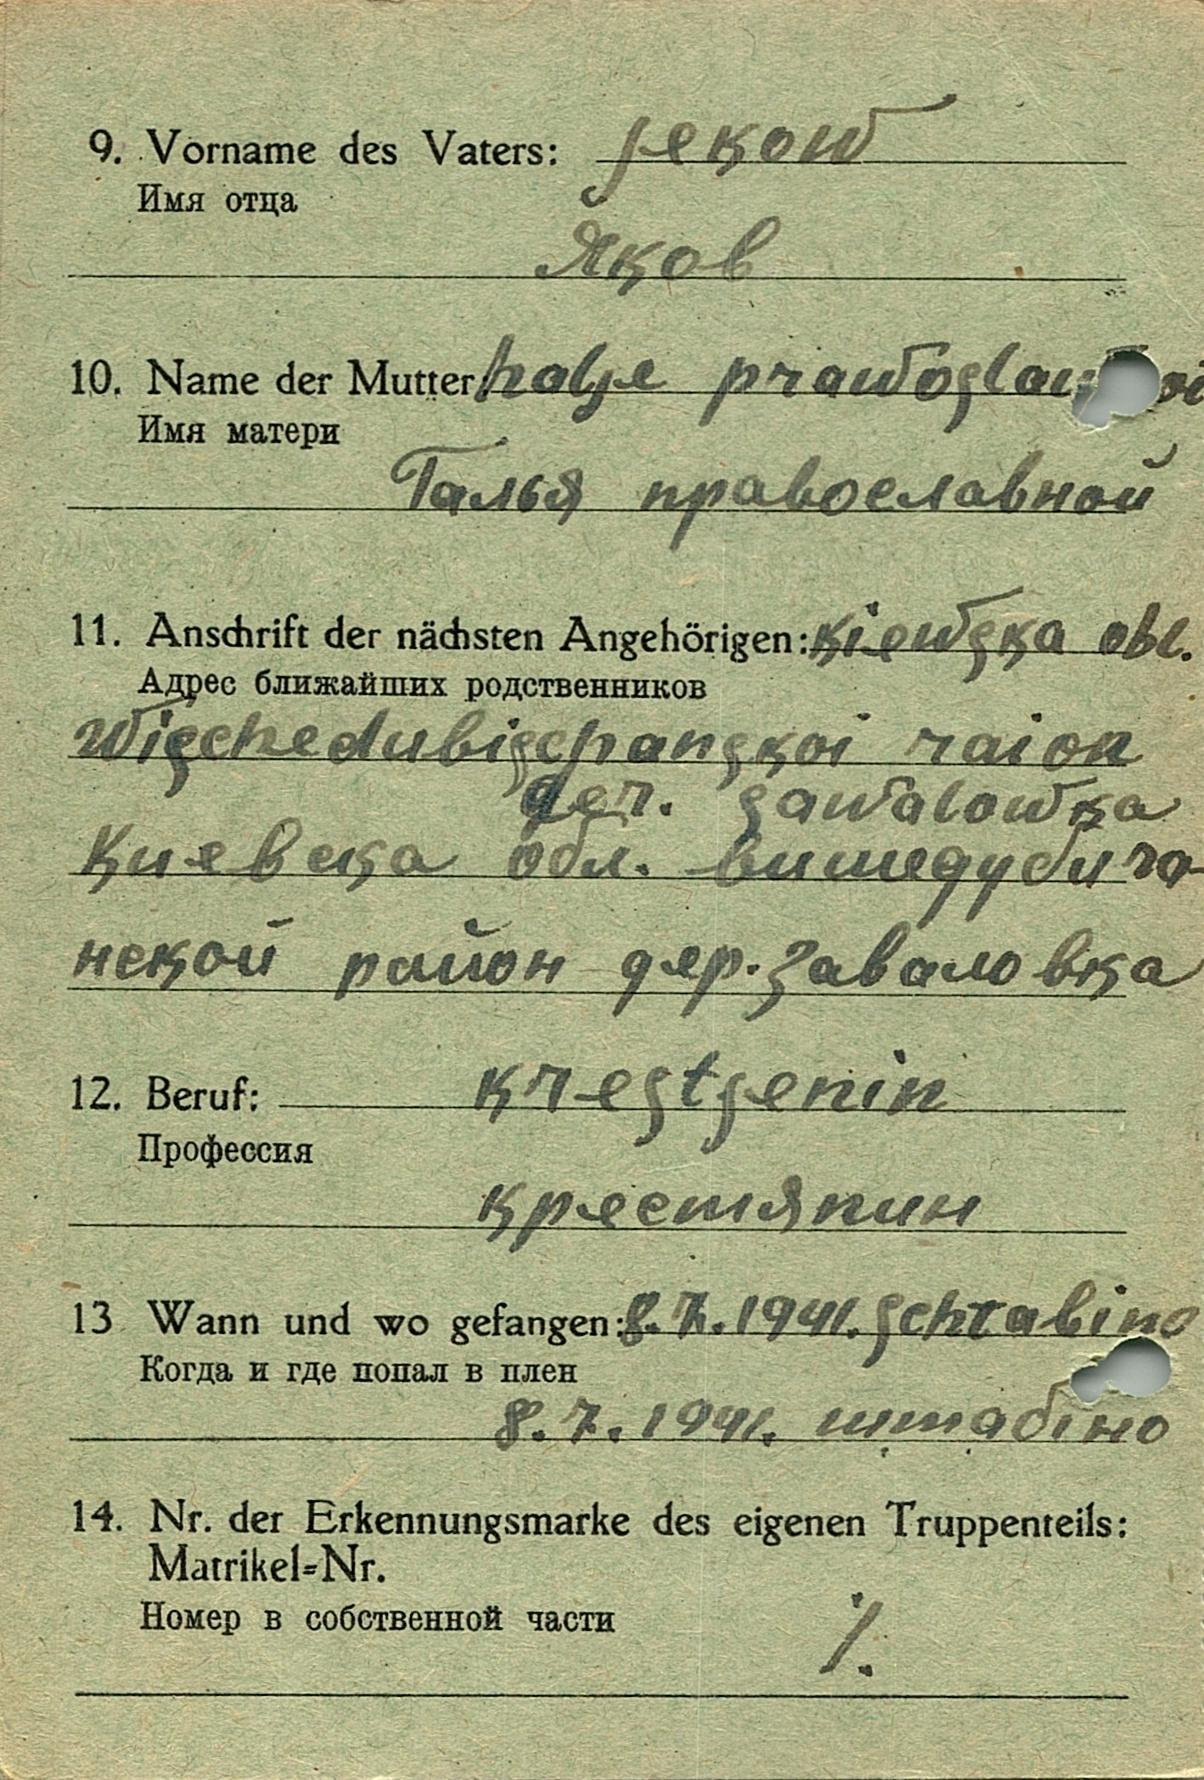 9. Vorname des Vaters: jekow
Имя отца
Яков
10. Name der Mutter: halje
Имя матери
Галья православной
11. Anschrift der nächsten Angehörigen: kiewska obl.
Адрес ближайших родственников
wischedubischanskoi raion
der. sawalowka
Киевска обл. вишедубича-
нской район дер. Заваловка
12. Beruf: krestjenin
Профессия
крестянин
13 Wann und wo gefangen: 8.7.1941. schtabino
Когда и где попал в плен
8.7.1941. штабіно
14. Nr. der Erkennungsmarke des eigenen Truppenteils:
Matrikel=Nr.
Номер в собственной части
/.